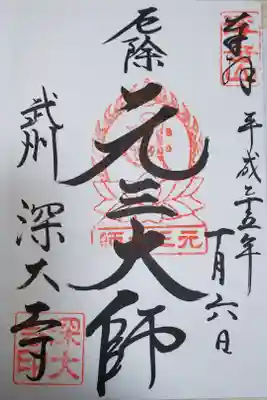 奉拝
平成二五年
月六日
厄除
元三大師
元三大師
武州
深大寺
深大寺印